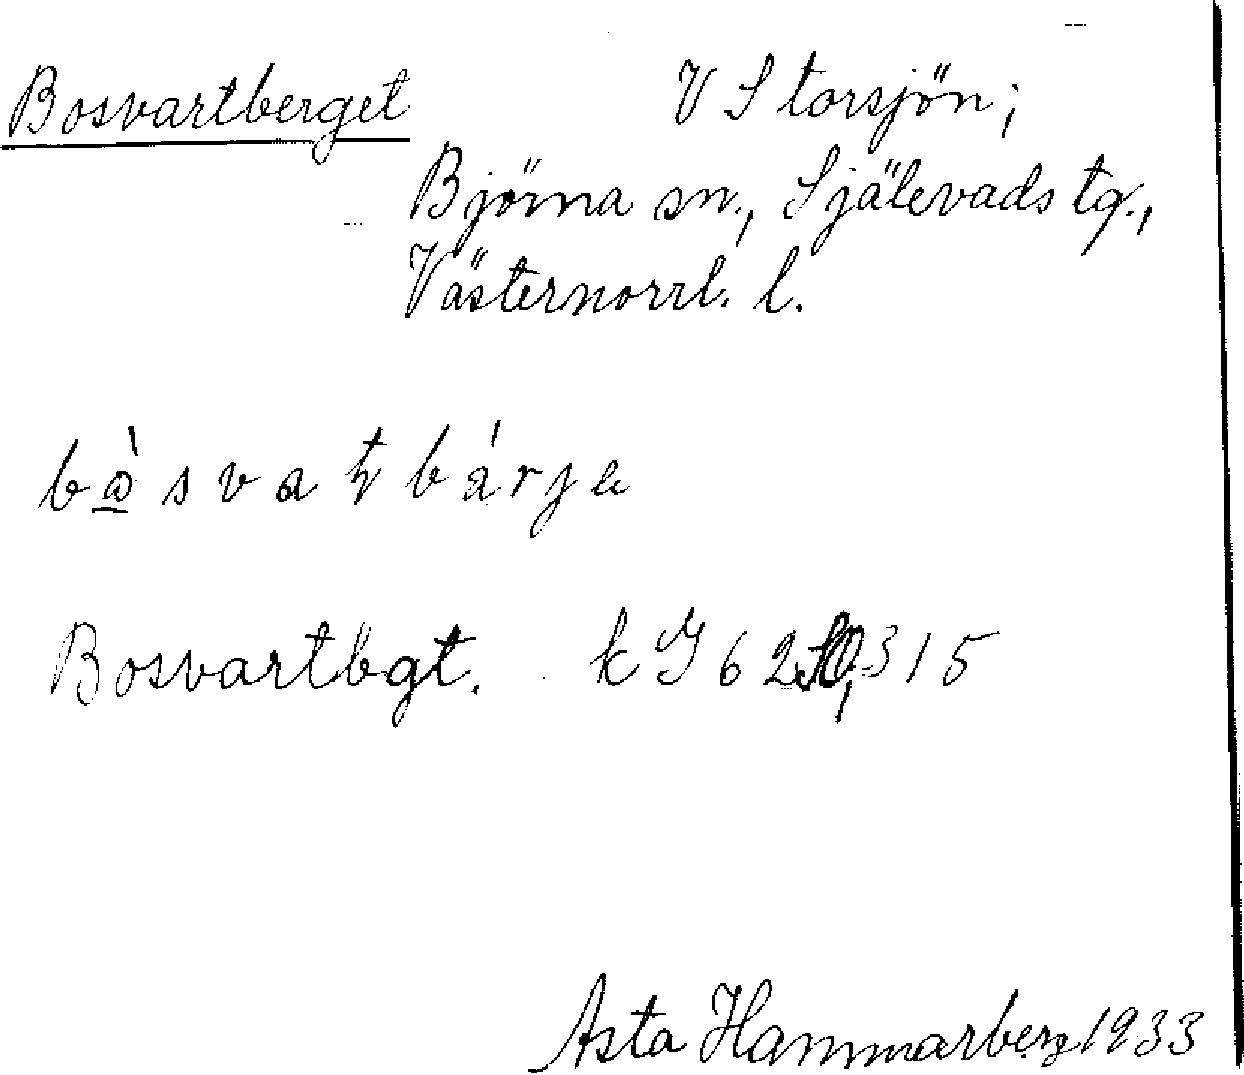 Bosvartberget V Storsjön;
Björna sn., Själevads tg.,
Västernorrl. l.
Bosvartbgt.
Asta Hammarberg 1933